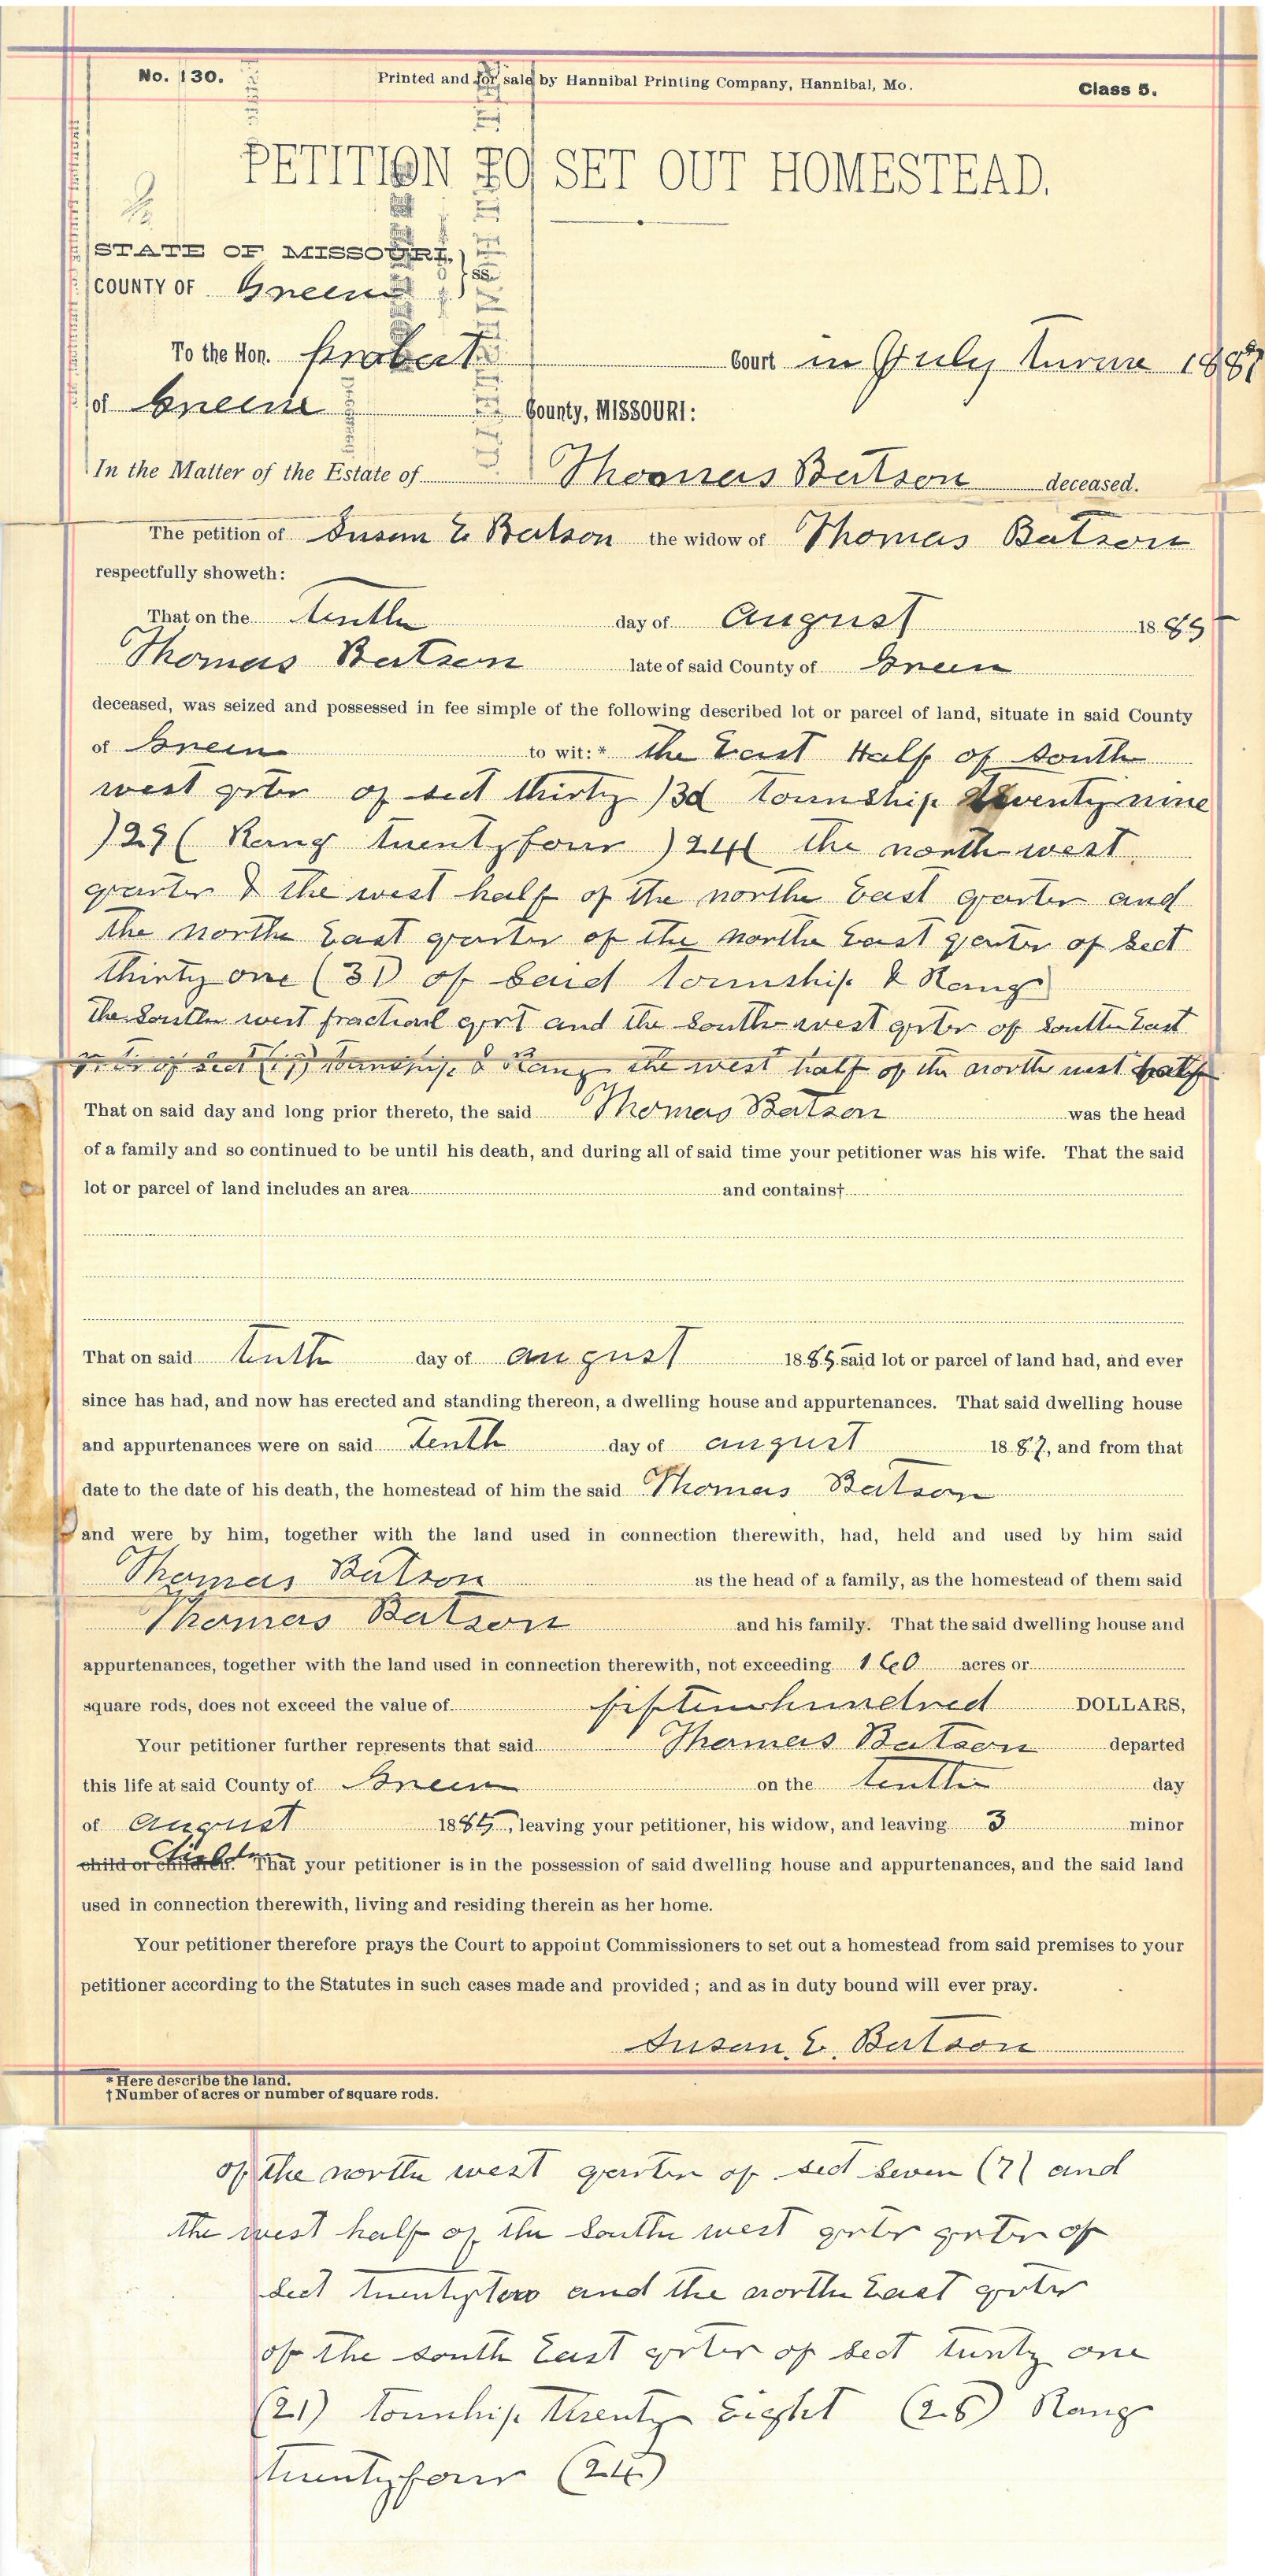 No. 130. Printed and for sale by Hannibal Printing Company, Hannibal, Mo. Class 5.
PETITION TO SET OUT HOMESTEAD.
STATE OF MISSOURI,
COUNTY OF Green } ss.
To the Hon. probat Court in July turm 1887
of Green County, MISSOURI:
In the Matter of the Estate of Thomas Batson deceased.
The petition of Susan E Batson the widow of Thomas Batson
respectfully showeth:
That on the tenth day of August 1885
Thomas Batson late of said County of Green
deceased, was seized and possessed in fee simple of the following described lot or parcel of land, situate in said County
of Green to wit:* the East Half of South
west qrter of sect thirty )30 township twenty nine
)29( Rang twenty four )24( the north west
quarter & the west half of the north East qarter and
the north East qarter of the north East qarter of sect
thirty one (31) of Said township & Rang
The South west fractional qrt and the South west qrter of South East
qrter of sect (19) township & Rang the west half of the north west half
That on said day and long prior thereto, the said Thomas Batson was the head
of a family and so continued to be until his death, and during all of said time your petitioner was his wife. That the said
lot or parcel of land includes an area and contains†
That on said tenth day of august 1885 said lot or parcel of land had, and ever
since has had, and now has erected and standing thereon, a dwelling house and appurtenances. That said dwelling house
and appurtenances were on said Tenth day of august 1887, and from that
date to the date of his death, the homestead of him the said Thomas Batson
and were by him, together with the land used in connection therewith, had, held and used by him said
Thomas Batson as the head of a family, as the homestead of them said
Thomas Batson and his family. That the said dwelling house and
appurtenances, together with the land used in connection therewith, not exceeding 160 acres or
square rods, does not exceed the value of fiftenhundred DOLLARS,
Your petitioner further represents that said Thomas Batson departed
this life at said County of Green on the tenth day
of august 1885, leaving your petitioner, his widow, and leaving 3 minor
child or children. Children That your petitioner is in the possession of said dwelling house and appurtenances, and the said land
used in connection therewith, living and residing therein as her home.
Your petitioner therefore prays the Court to appoint Commissioners to set out a homestead from said premises to your
petitioner according to the Statutes in such cases made and provided; and as in duty bound will ever pray.
Susan. E. Batson
*Here describe the land.
†Number of acres or number of square rods.
of the north west qarter of sect Seven (7( and
the west half of the South west qrter qrter of
Sect twentytow and the north East qrter
of the south East qrter of sect tunty one
(21) township twenty Eight (28) Rang
twentyfour (24)